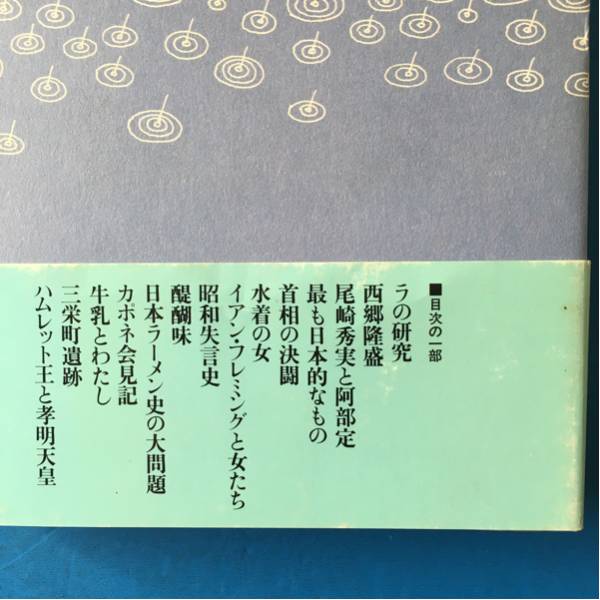 ■目次の一部
ラの研究
西郷隆盛
尾崎秀実と阿部定
最も日本的なもの
首相の決闘
水着の女
イアン・フレミングと女たち
昭和失言史
醍醐味
日本ラーメン史の大問題
カポネ会見記
牛乳とわたし
三栄町遺跡
ハムレット王と孝明天皇